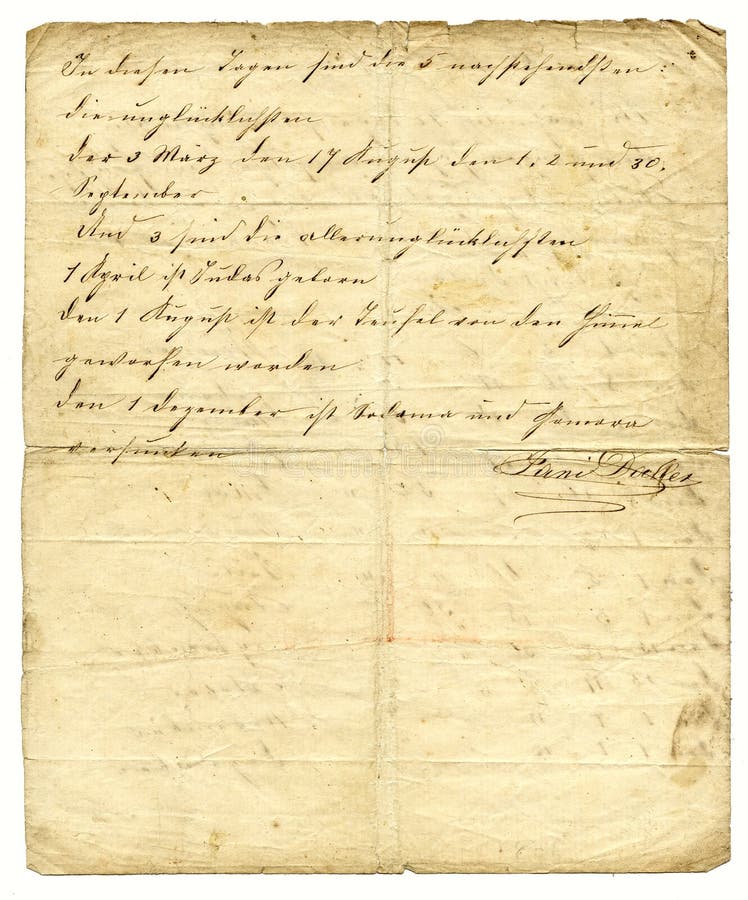 In diesen Tagen sind die 5 nachstehendsten:
die unglücklichsten
der 3 März den 17 August den 1. 2 und 30.
September
Und 3 sind die allerunglücklichsten
1 April ist Judas geborn
den 1 August ist der Teufel von den Himmel
geworfen worden
den 1 Dezember ist Sodoma und Gomora
versunken
dreamstime